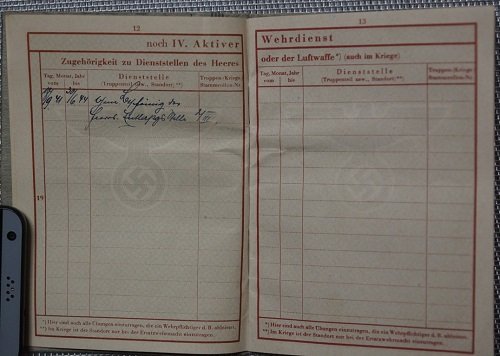 12
noch IV. Aktiver
Zugehörigkeit zu Dienststellen des Heeres
Tag, Monat, Jahr
vom bis
Dienststelle
(Truppenteil usw., Standort: **)
Truppen-/Kriegs-
Stammrollen-Nr.
19
*) Hier sind auch alle Übungen einzutragen, die ein Wehrpflichtiger d. B. ableistet.
**) Im Kriege ist der Standort nur bei der Ersatzwehrmacht einzutragen.
13
Wehrdienst
oder der Luftwaffe*) (auch im Kriege)
Tag, Monat, Jahr
vom bis
Dienststelle
(Truppenteil usw., Standort: **)
Truppen-/Kriegs-
Stammrollen-Nr.
*) Hier sind auch alle Übungen einzutragen, die ein Wehrpflichtiger d. B. ableistet.
**) Im Kriege ist der Standort nur bei der Ersatzwehrmacht einzutragen.